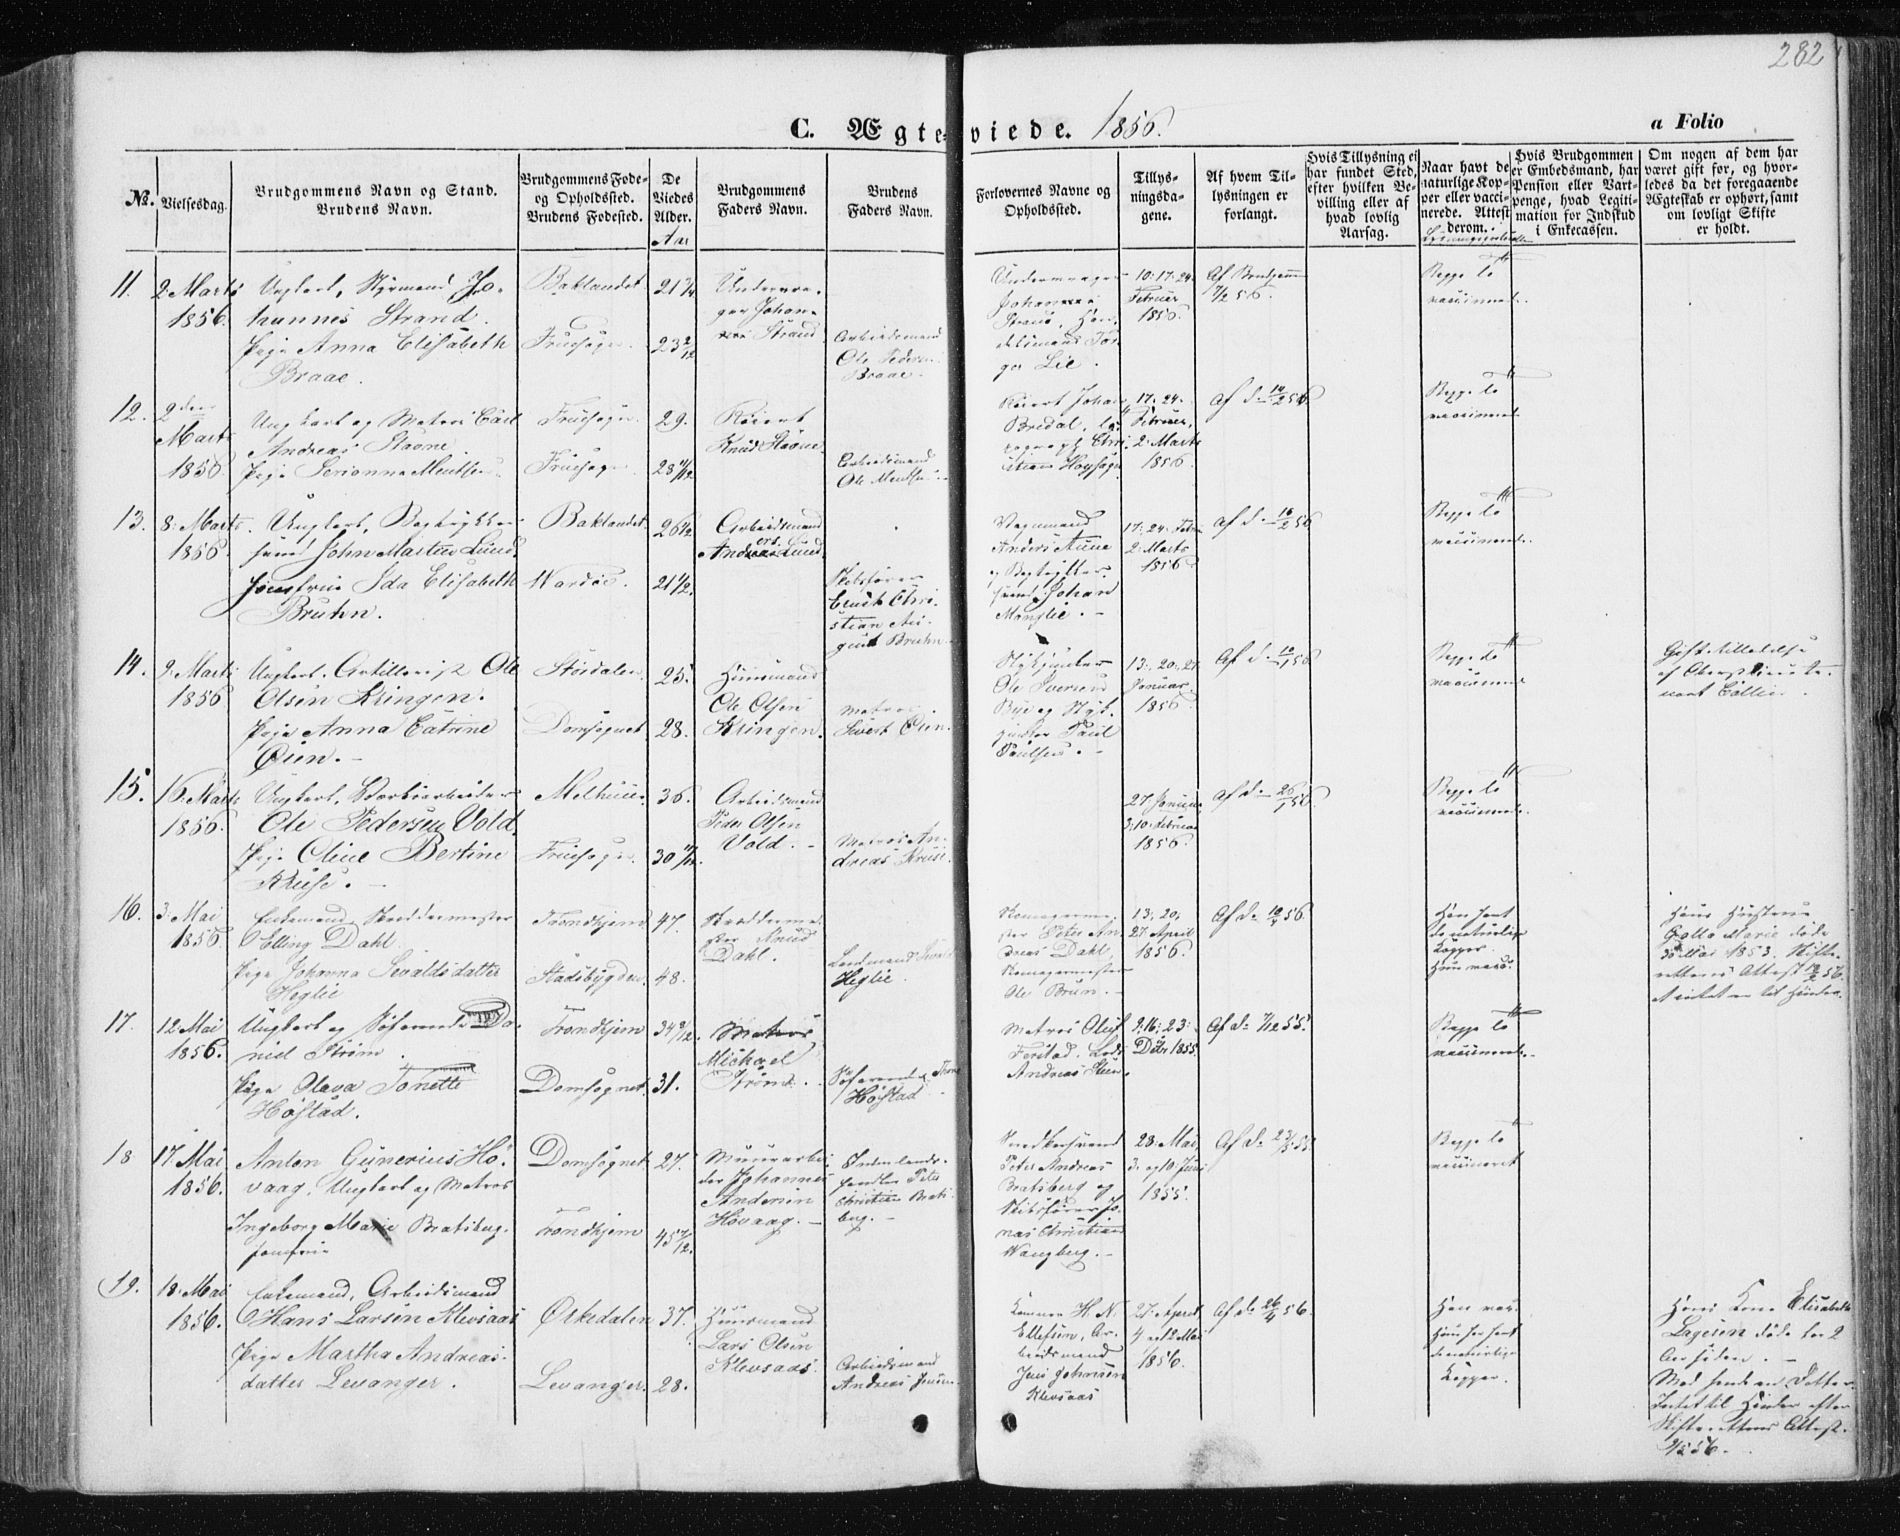 282
C. Ægte-viede. 1856.
a Folio
No.
Vielsesdag.
Brudgommens Navn og Stand.
Brudens Navn.
Brudgommens Føde-
og Opholdssted.
Brudens Fødested.
De
Viedes
Alder.
Aar
Brudgommens
Faders Navn.
Brudens
Faders Navn.
Forlovernes Navne og
Opholdssted.
Tillys-
ningsda-
gene.
Af hvem Til-
lysningen er
forlangt.
Hvis Tillysning ei
har fundet Sted,
efter hvilken Be-
villing eller af
hvad lovlig
Aarsag.
Naar havt de
naturlige Kop-
per eller vacci-
nerede. Attest
derom.
Hvis Brudgommen
er Embedsmand, har
Pension eller Vart-
penge, hvad Legiti-
mation for Indskud
i Enkecassen.
Om nogen af dem har
været gift før, og hvor-
ledes da det foregaaende
Ægteskab er ophørt, samt
om lovligt Skifte
er holdt.
11. 2 Marts
1856.
Ungkarl, Styrmand Jo-
hannes Strand.
Pige Anna Elisabeth
Braae.
Baklandet.
Fruesogn.
21 1/4
23 2/12
Johan-
Strand
Arbeidsmand
Ole Pedersen
Braae.
Strand, Han-
delsmand Tor-
ger Lie.
10. 17. 24.
Februar
1856.
Af Brudgommen
7/2 56.
Begge to
vaccinerede.
12. 2den
Marts
1856
Ungkarl og Matros Carl
Andreas Stavne.
Pige Serianna Mentsen
Fruesogn.
Fruesogn
29.
28 11/12
Knud Stavne.
Arbeidsmand
Ole Mentsen.
Johan
Bredal,
17. 24.
Februar,
2 Marts
1856.
Af d. 14/2 56.
Begge to
vaccinerede
13. 8. Marts
1856.
Ungkarl, Bogtrykker-
svend John Martin Lund
Jomfrue Ida Elisabeth
Bruhn.
Baklandet.
Wardøe.
26 1/2
21 1/2.
Arbeidsmand
Anders Lund
Skibsfører
Ernst Chri-
stian Au-
gust Bruhn.
Vognmand
Anders Aune
og Bogtrykker-
svend Johan
17. 24. Febru
2. Marts
1856
Af d. 16/2 56
Begge to
vaccinerede.
14. 9. Marts
1856
Ungkarl, Artillerist Ole
Olsen Kringen.
Pige Anna Catrine
Øien.
Størdalen
Domsognet.
25.
28.
Huusmand
Ole Olsen
Kringen.
Matros
Sivert Øien.
Stykjunker
Ole Iversen
Bye og Styk-
junker Paul
Paulsen.
13. 20. 27
Januar.
1856.
Af d. 10/1 56
Begge to
vaccinerede
Gifte-tilladelse
af Oberstlieute-
nant
15. 16. Marts
1856.
Ungkarl, Værksarbeider
Ole Pedersen Vold.
Pige Oline Bertine
Kruse.
Melhuus.
Fruesogn.
36.
30 11/12.
Arbeidsmand
Peder Olsen
Vold.
Matros An-
dreas Kruse.
27. Januar,
3. 10. Februar
1856.
Af d. 26/1 56
Begge to
vaccinerede.
16. 3. Mai
1856.
Enkemand, Skræddermester
Elling Dahl.
Pige Johanna Sevaldsdatter
Heglie
Trondhjem
Stadsbygden
47.
48.
Skrædderme-
ster Knud
Dahl.
Leilmand Sevald
Heglie.
Skomagerme-
ster Peter An-
dreas Dahl,
Skomagermester
Ole Brun.
13. 20.
27. April
1856.
Af d. 10/4 56.
Han havt
de naturlige
Kopper.
Hun vacc.
Hans Hustrue
Marie døde
Mai 1853. Skifte-
rettens Attest 56
at intet er til Hinder.
17. 12 Mai
1856.
Ungkarl og Søfarende Da-
niel Strøm.
Pige Olava Tonette
Høstad.
Trondhjem
Domsognet.
34 9/12.
31.
Matros
Michael
Strøm.
Søfarende
Høstad
Matros Oluf
Ferstad. Lods
Andreas Stein.
9. 16. 23.
Dbr 1855.
Af d. 7/12 55.
Begge to
vaccinerede.
18 17 Mai
1856.
Anton Gunerius Hø-
vaag, Ungkarl og Matros
Ingeborg Marie Bratsberg,
Jomfrue
Domsognet
Trondhjem
27.
45 7/12.
Muurarbei-
der Johannes
Andersen
Høvaag.
Peter
Christian Brats-
berg.
Snedkersvend
Peter Andreas
Bratsberg og
Skibsfører Jo-
nas Christian
Wangberg.
28. Mai,
3. og 10. Juni
1855.
Af d. 23/5 55.
Begge to
vaccineret
19. 18. Mai
1856.
Enkemand, Arbeidsmand
Hans Larsen Klevsaas
Pige Martha Andreas-
datter Levanger.
Ørkedalen
Levanger.
37.
28.
Huusmand
Lars Olsen
Klevsaas.
Arbeidsmand
Andreas Jensen
H. N.
Ellefsen, Ar-
beidsmand
Jens Johnsen
Klevsaas
27. April
4 Mai
1856.
Af d. 26/4 56.
Han vac.
Hun har havt
de naturlige
Kopper.
Hans Kone Elisabeth
Lagesen døde for 2
Aar siden.
Med hende en Datter.
Intet til Hinder efter
Skifterettens Attest.